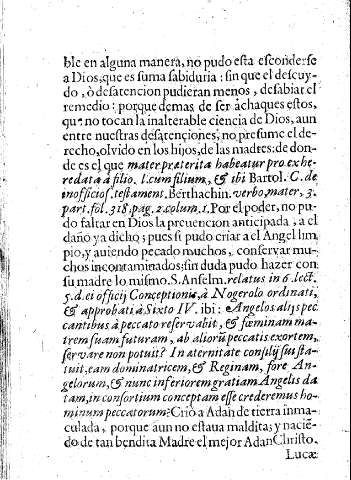 ble en alguna manera, no pudo esta esconderse
a Dios, que es suma sabiduria: sin que el descuy-
do, ò desatencion pudieran menos, desabiar el
remedio: porque demas de ser achaques estos,
qu' no tocan la inalterable ciencia de Dios, aun
entre nuestras desatenciones, no presume el de-
recho, olvido en los hijos, de las madres: de don-
de es el que mater præterita habeatur pro exhe-
redata à filio. l. cum filium, & ibi Bartol. C. de
inofficios. testament. Berthachin. verbo, mater, 3.
part. fol. 318. pag. 2. colum. 1. Por el poder, no pu-
do faltar en Dios la preuencion anticipada, a el
daño ya dicho; pues si pudo criar a el Angel lim
pio, y auiendo pecado muchos, conservar mu-
chos incontaminados; sin duda pudo hazer con
su madre lo mismo. S. Anselm. relatus in 6. lect.
5. d. ei officij Conceptionis, à Nogerolo ordinati,
& approbati à Sixto IV. ibi: Angelos alijs pec
cantibus à peccato reservabit, & fœminam ma-
trem suam futuram, ab aliorũ peccatis exortem,
servare non potuit? In aternitate consilij sui sta-
tuit, eam dominatricem, & Reginam, fore An-
gelorum, & nunc infertorem gratiam Angelis da
tam, in consortium conceptam esse crederemus ho-
minum peccatorum? Criò a Adan de tierra inma-
culada, porque aun no estaua maldita; y nacië-
do de tan bendita Madre el mejor Adan Christo.
Lucæ